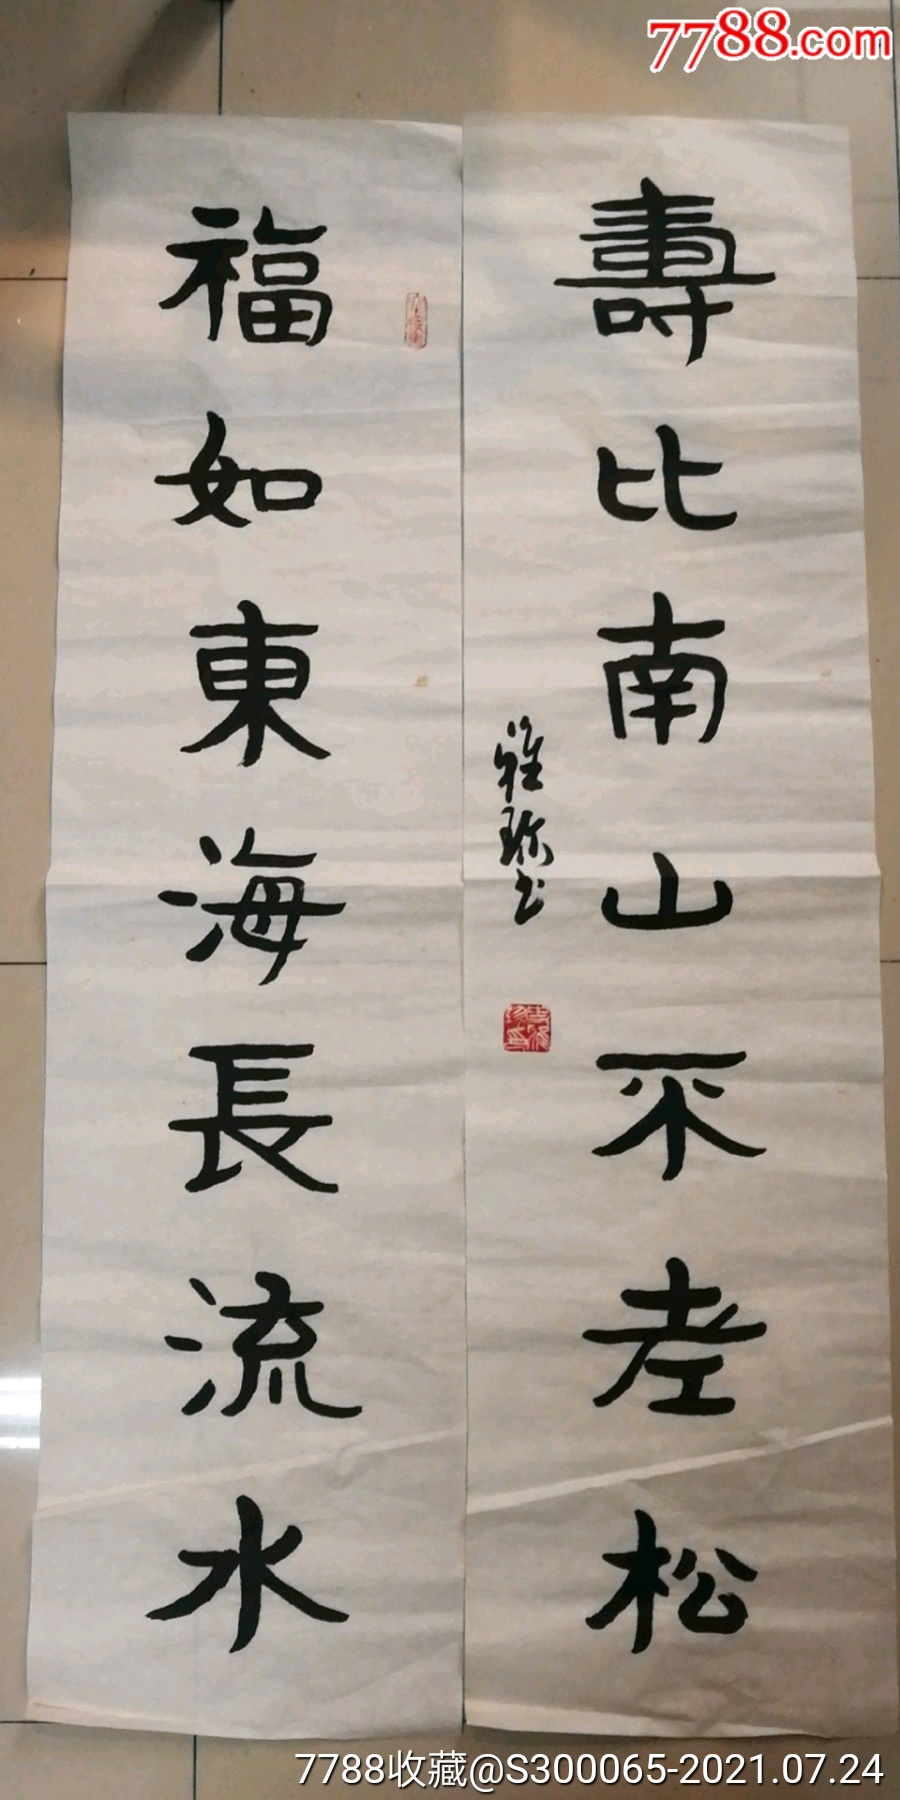 7788.com
福如東海長流水
壽比南山不老松
雅珍书
7788收藏@S300065-2021.07.24